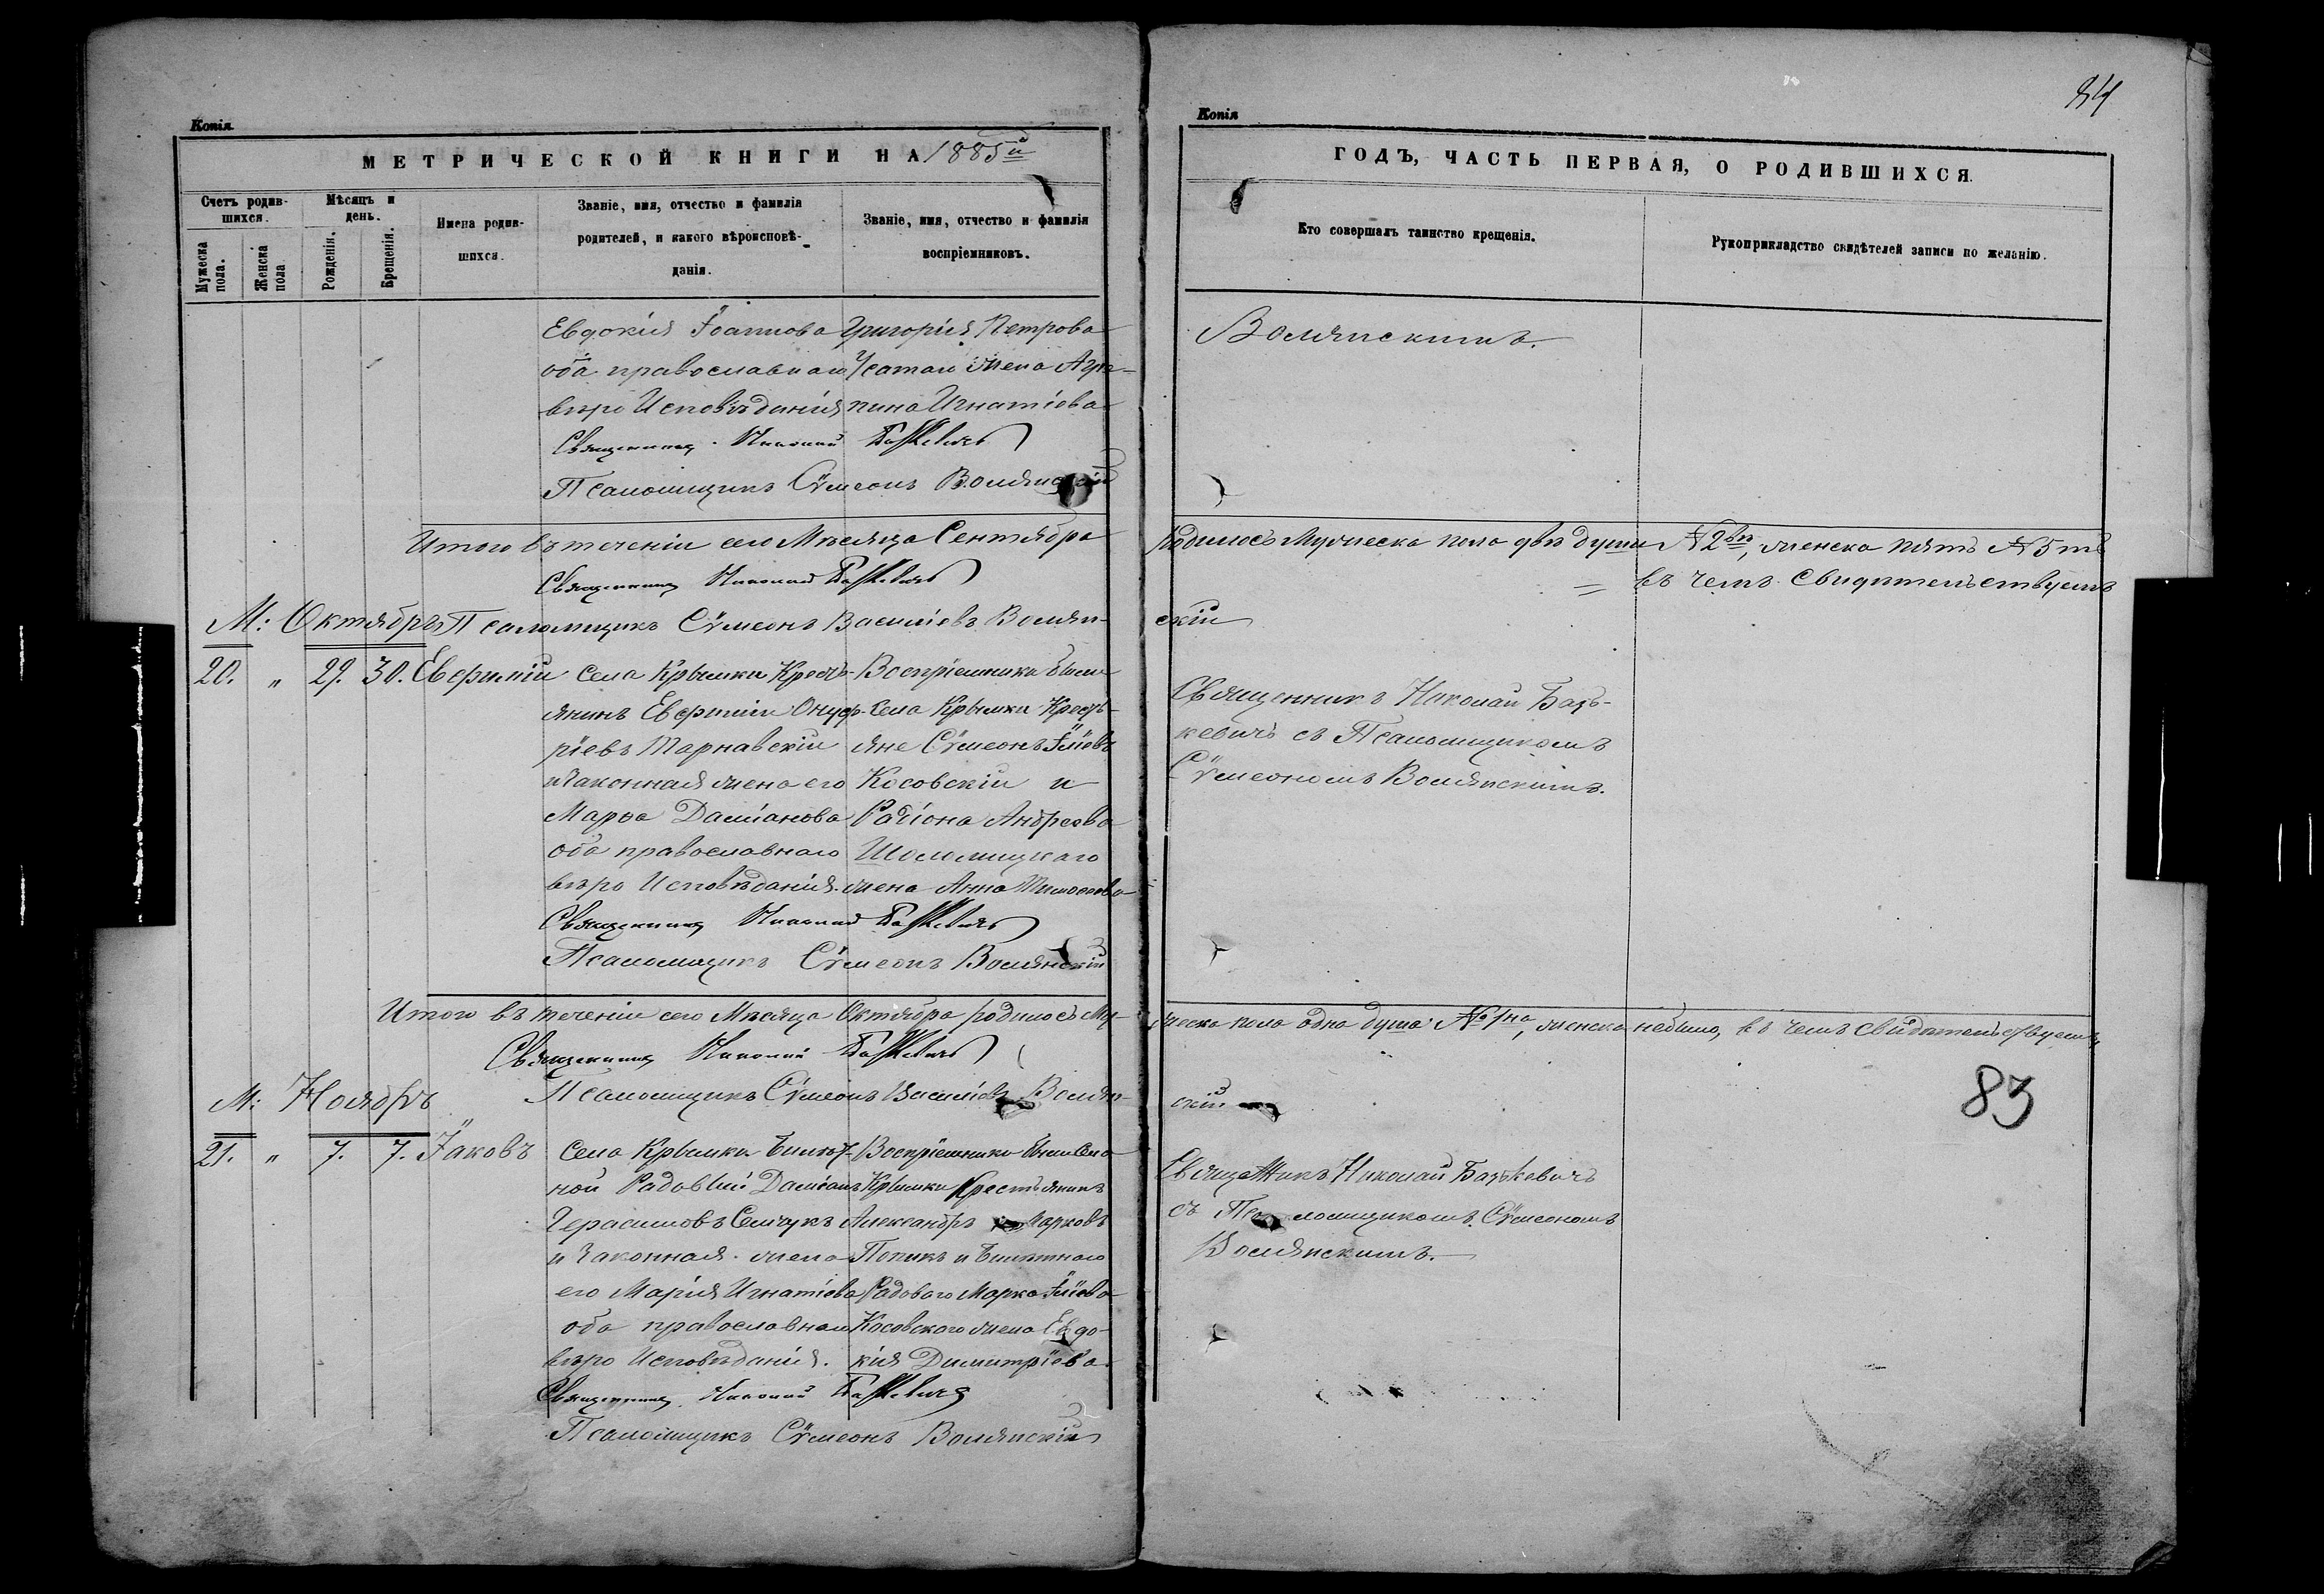 Копія
МЕТРИЧЕСКОЙ КНИГИ НА 1885й
Счетъ родив-
шихся.
Мѣсяцъ и
день.
Имена родив-
шихся.
Званіе, имя, отчество и фамилія
родителей, и какого вѣроисповѣ-
данія.
Званіе, имя, отчество и фамилія
воспріемниковъ.
Мужеска
пола.
Женска
пола
Рожденія.
Крещенія.
Евдокія Іоаннова
оба православнаго
вѣро Исповѣданія
Григорія Петрова
жена Агри-
пина Игнатіова
Священникъ Николай Базкевичъ
Псаломщикъ Сѵмеонъ Волянскій
Итого въ теченіи сего Мѣсяца Сентября
Священникъ Николай Базкевичъ
М: Октябрь
Псаломщикъ Сѵмеонъ Василіевъ Волян-
20. " 29. 30. Евфимій
села Крымки Кресть-
янинъ Евфимій Онуф-
ріевъ Тарнавскій
и Законная жена его
Марѳа Даміанова
оба православнаго
вѣро Исповѣданія.
Воспріемники были
села Крымки Кресть-
яне Сѵмеонъ Іліовъ
Косовскій и
Радіона Андреева
Шоломицкаго
жена Анна Тимоѳеева
Священникъ Николай Базкевичъ
Псаломщикъ Сѵмеонъ Волянскій
Итого въ теченіи сего Мѣсяца Октября родилось Му-
Священникъ Николай Базкевичъ
М: Ноябрь
Псаломщикъ Сѵмеонъ Василіевъ Волян-
21. " 7. 7. Іаковъ
села Крымки Билет-
ной Радовый Даміанъ
Герасимовъ Семчукъ
и Законная жена
его Марія Игнатіова
оба православнаго
вѣро Исповѣданія.
Воспріемники были села
Крымки Крестьянинъ
Александръ Марковъ
Попикъ и Билетнаго
Радоваго Марка Іліова
Косовскаго жена Евдо-
кія Димитріева
Священникъ Николай Базкевичъ
Псаломщикъ Сѵмеонъ Волянскій
84
Копія
ГОДЪ, ЧАСТЬ ПЕРВАЯ, О РОДИВШИХСЯ.
Кто совершалъ таинство крещенія.
Рукоприкладство свидѣтелей записи по желанію.
Волянскимъ.
родилось Мужеска пола двѣ души №2вѣ, женска пять №5ть
въ чемъ свидѣтельствуемъ
скій
Священникъ Николай Базь-
кевичъ съ Псаломщикомъ
Сѵмеономъ Волянскимъ.
жеска пола одна душа №1на, женска небыло, въ чемъ свидѣтельствуемъ
83
скій
Священникъ Николай Базькевичъ
съ Псаломщикомъ Сѵмеономъ
Волянскимъ.